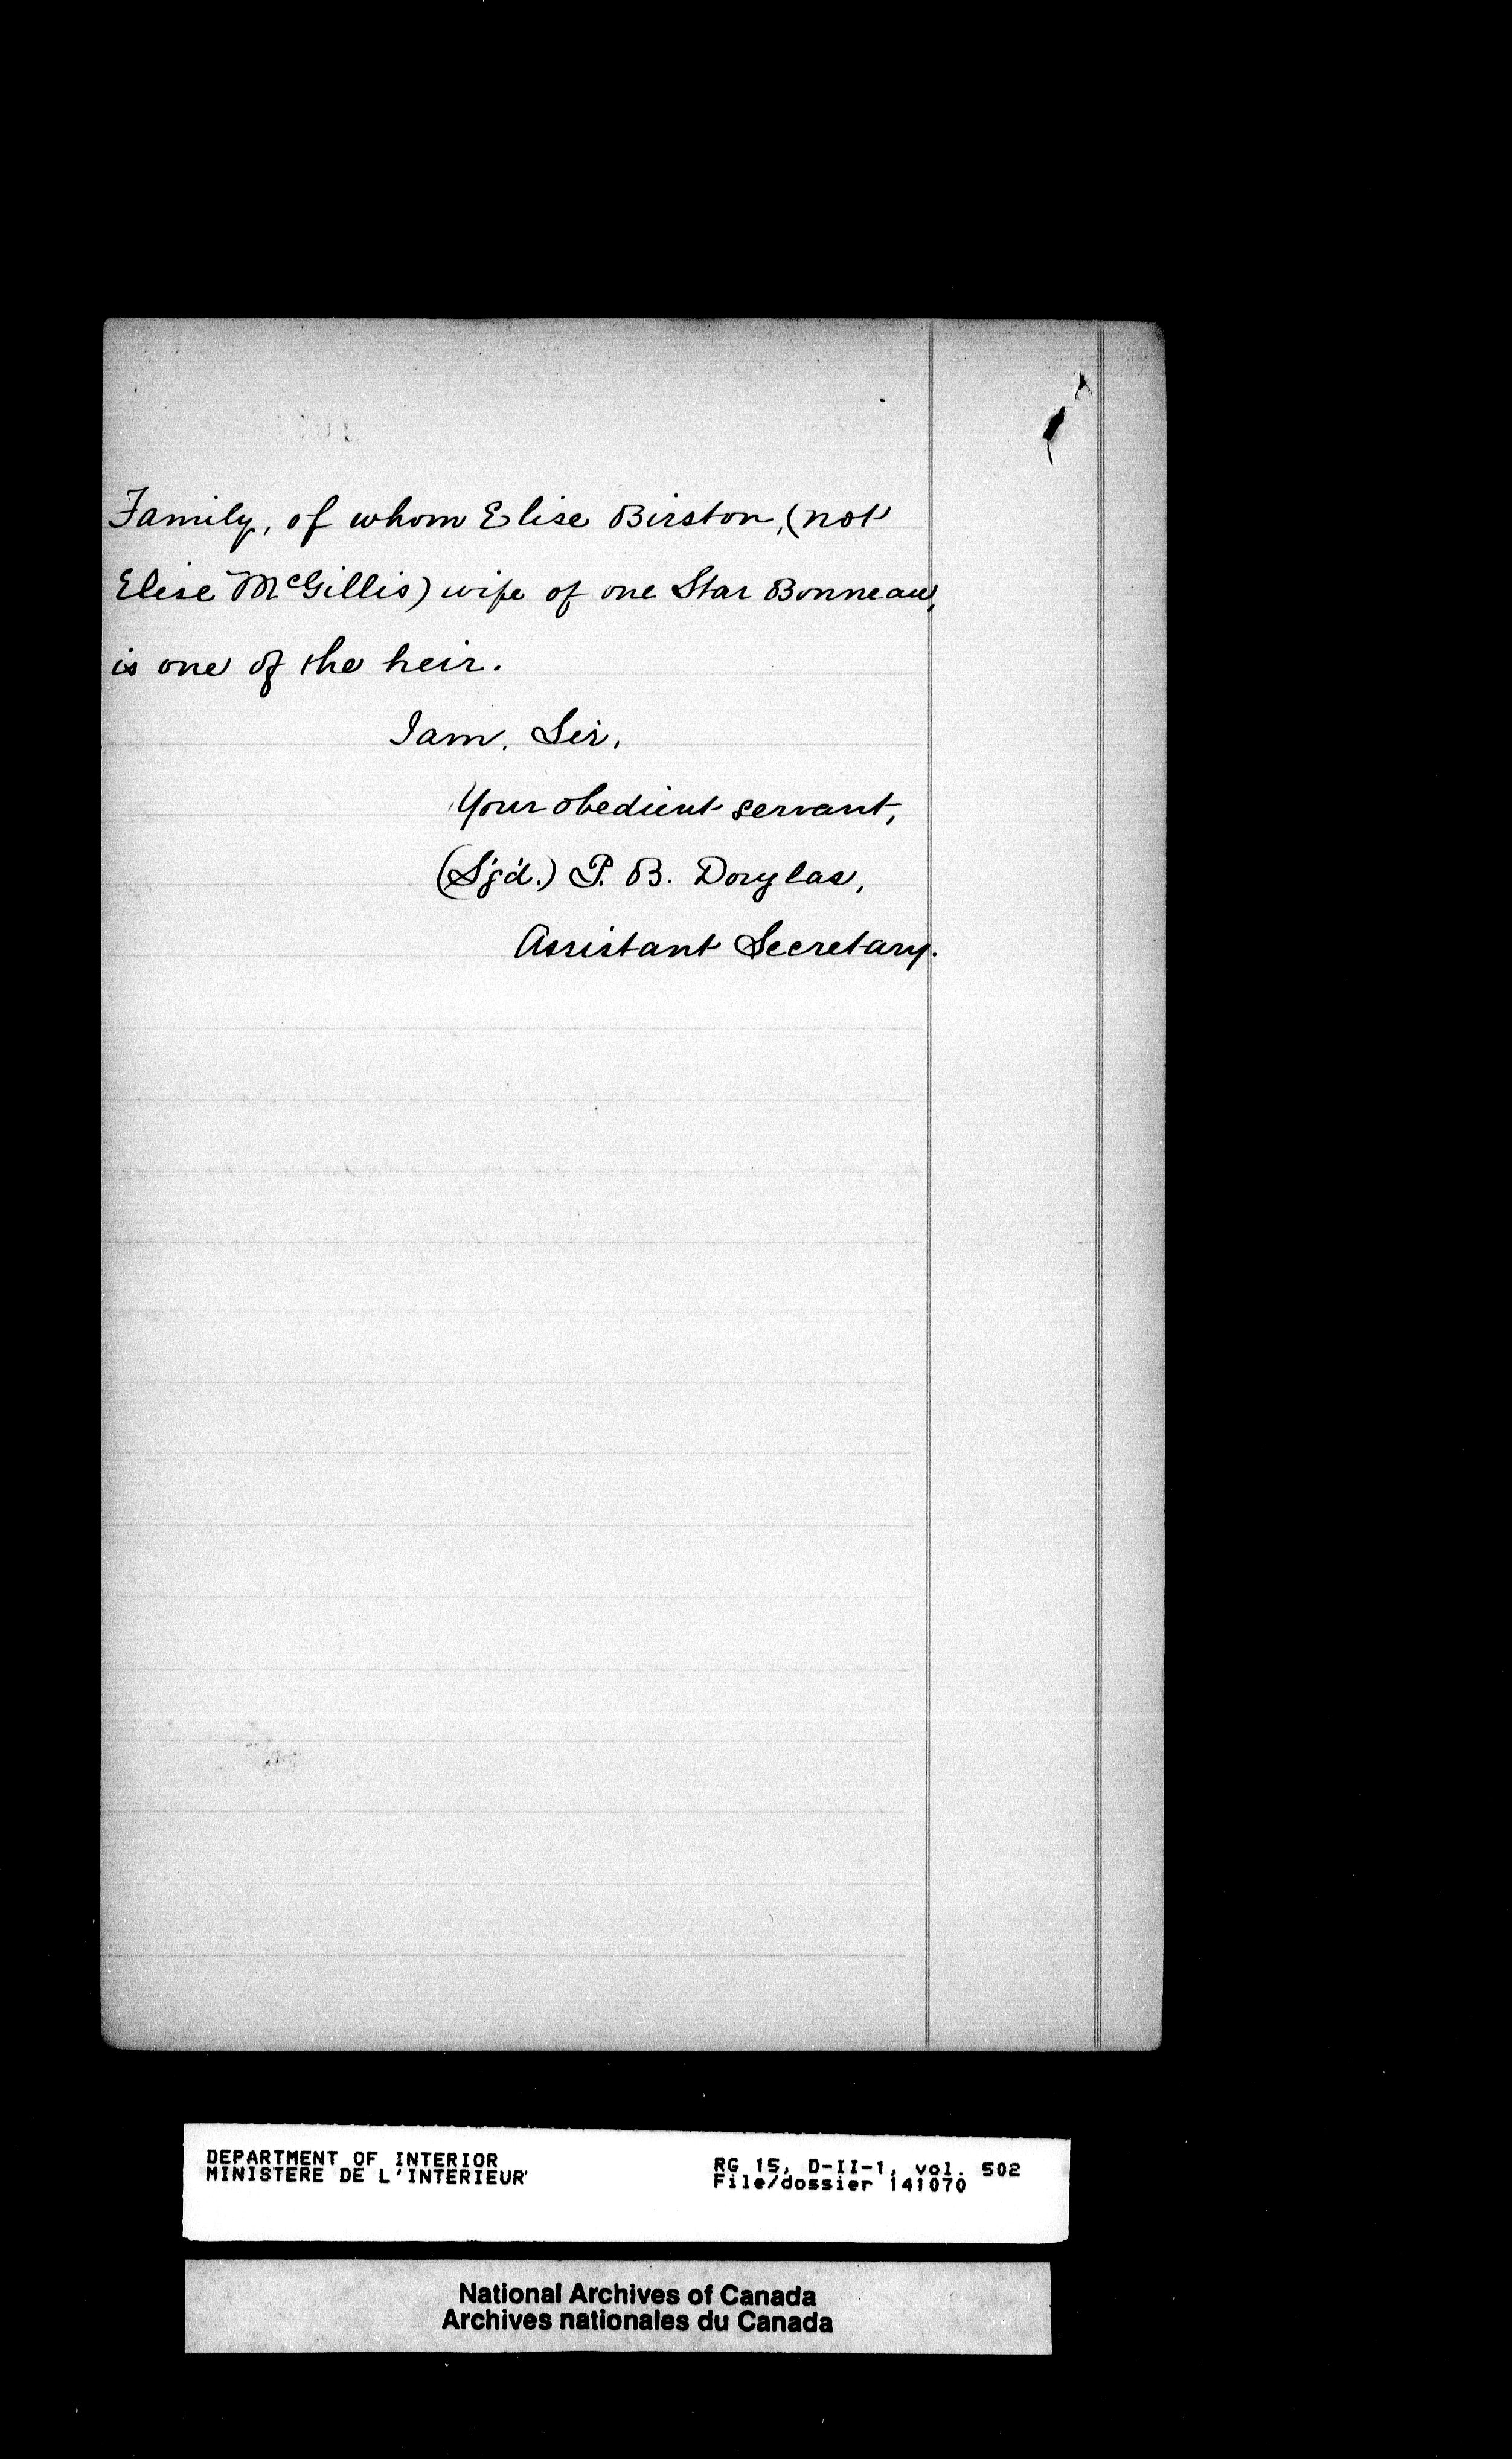 Family, of whom Elise Birston, (not
Elise McGillis) wife of one Star Bonneau,
is one of the heir.
I am, Sir,
Your obedient servant,
(Sg'd.) P. B. Douglas,
Assistant Secretary.
DEPARTMENT OF INTERIOR
MINISTERE DE L'INTERIEUR
RG 15, D-II-1, vol. 502
File/dossier 141070
National Archives of Canada
Archives nationales du Canada